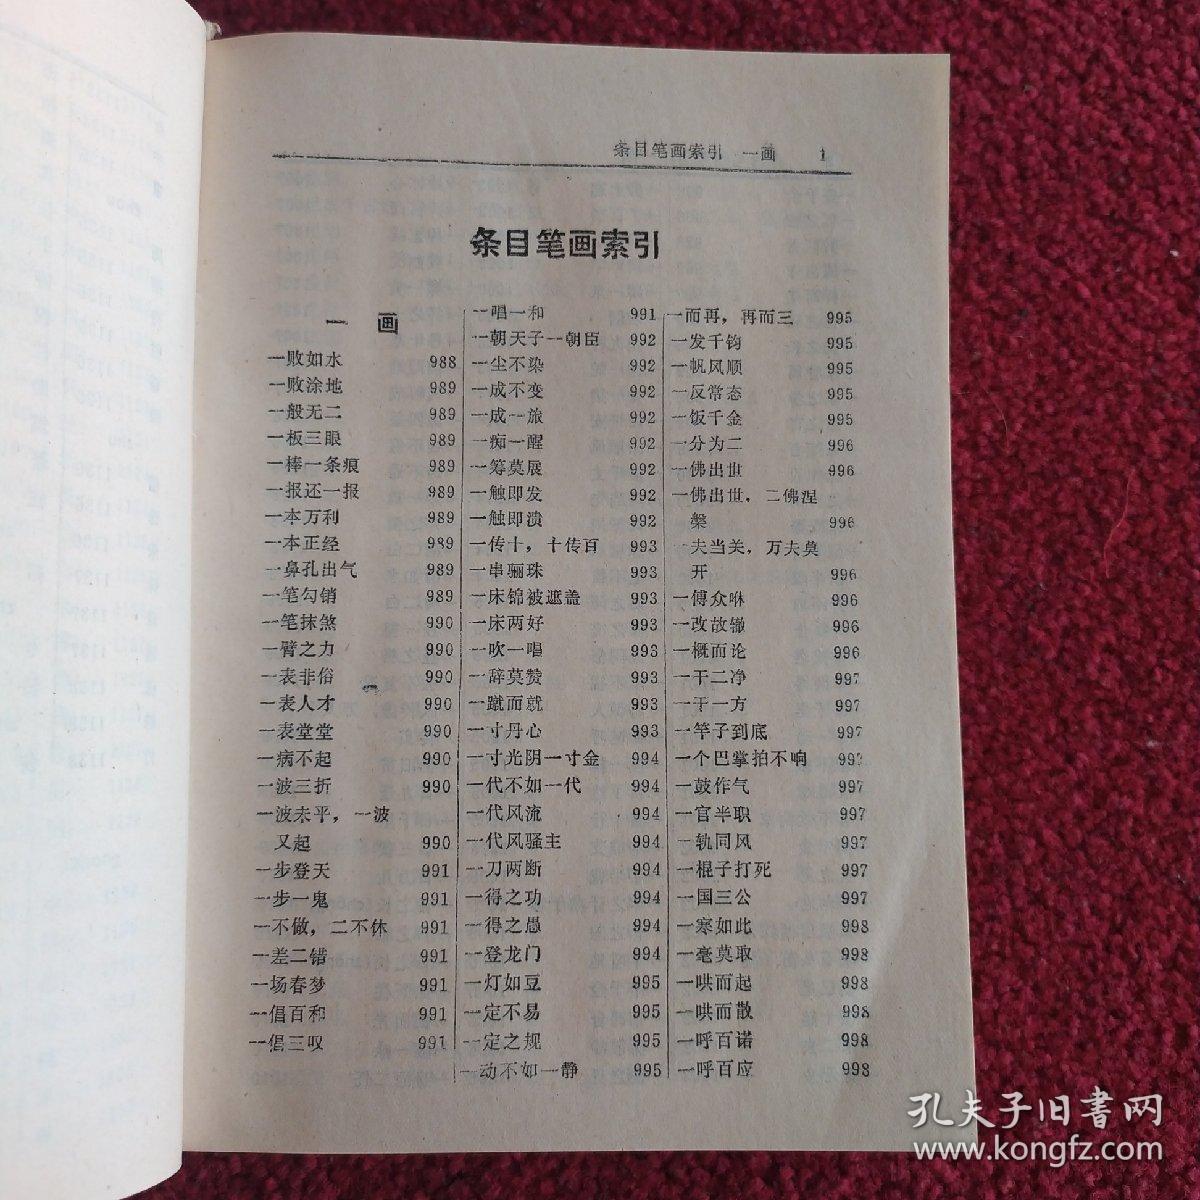 条目笔画索引 一画 1
条目笔画索引
一 画
一败如水 988
一败涂地 989
一般无二 989
一板三眼 989
一棒一条痕 989
一报还一报 989
一本万利 989
一本正经 989
一鼻孔出气 989
一笔勾销 989
一笔抹煞 990
一臂之力 990
一表非俗 990
一表人才 990
一表堂堂 990
一病不起 990
一波三折 990
一波未平，一波
又起 990
一步登天 991
一步一鬼 991
一不做，二不休 991
一差二错 991
一场春梦 991
一倡百和 991
一倡三叹 991
一唱一和 991
一朝天子一朝臣 992
一尘不染 992
一成不变 992
一成一旅 992
一痴一醒 992
一筹莫展 992
一触即发 992
一触即溃 992
一传十，十传百 993
一串骊珠 993
一床锦被遮盖 993
一床两好 993
一吹一唱 993
一辞莫赞 993
一蹴而就 993
一寸丹心 993
一寸光阴一寸金 994
一代不如一代 994
一代风流 994
一代风骚主 994
一刀两断 994
一得之功 994
一得之愚 994
一登龙门 994
一灯如豆 995
一定不易 995
一定之规 995
一动不如一静 995
一而再，再而三 995
一发千钧 995
一帆风顺 995
一反常态 995
一饭千金 995
一分为二 996
一佛出世 996
一佛出世，二佛涅
槃 996
一夫当关，万夫莫
开 996
一傅众咻 996
一改故辙 996
一概而论 996
一干二净 997
一干一方 997
一竿子到底 997
一个巴掌拍不响 997
一鼓作气 997
一官半职 997
一轨同风 997
一棍子打死 997
一国三公 997
一寒如此 998
一毫莫取 998
一哄而起 998
一哄而散 998
一呼百诺 998
一呼百应 998
孔夫子旧书网
www.kongfz.com